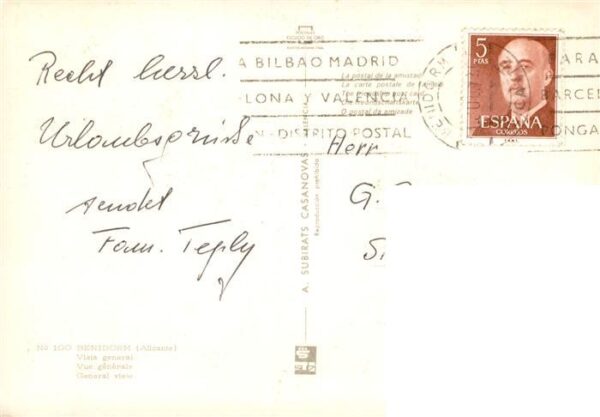 Recht herzl.
Urlaubsgrüsse
sendet
Fam. Teply
Herr
G.
A BILBAO MADRID
LONA Y VALENCIA
N - DISTRITO POSTAL
La postal de la amistad
La carte postale de l'amitié
Die Freundschaftskarte
O postal da amizade
BENIDORM
5
PTAS
ESPAÑA
CORREOS
ARA
BARCEL
PONGA
A. SUBIRATS CASANOVAS - VALENCIA
Reproducción prohibida
Nº 100 BENIDORM (Alicante)
Vista general
Vue générale
General view